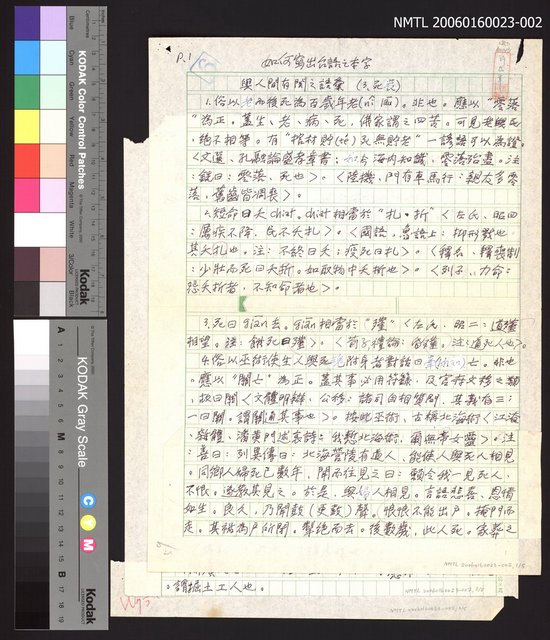 NMTL 20060160023-002
P.1
如何寫出台語之本字
與人間有關之語彙 (3.死喪)
1.俗以老而後死為百歲年老 。非也。應以“零落”
為正。蓋生、老、病、死,佛家謂之四苦。可見老與死
絕不相等。有“棺材貯 死無貯老”一諺語可以為證。
《文選、孔融論盛孝章書:知 海內知識,零落殆盡。注:
銑曰:零落,死也》。《陸機、門有車馬行:親友多零
落,舊齒皆凋喪》。
2.短命曰夭 。 相當於“札‧折”《左氏、昭四:
厲疾不降,民不夭札》。《國語、魯語上:
其夭札也。注:不終曰夭;疫死曰札》。《釋名、釋喪制
:少壯而死曰夭折。如取物中夭折也》。《列子、力命:
怨夭折者,不知命者也》。
3.死曰 去。 相當於“殣”《左氏、昭三:道殣
相望。注:餓死曰殣》。
4.俗以巫術使生人與死 附身者對話曰 亡。非也
。應以“關亡”為正。蓋其事必用符籙,及官府文移之類,
故曰關《文體明辯、公移:諸司自相質問,其義有三:
一曰關。謂關通其事也》。按此巫術,古稱北海術《江淹、
雜體、潘黃門述哀詩:我慙北海術,爾無帝女靈》。注
:善曰:列異傳曰:北海營陵有道人,能使人與死人相見。
同鄉人婦死已數年,聞而往見之曰:願令我一見死人,
不恨。遂教其見之。於是,與 人相見。言語悲喜、恩情
如生。良久,乃聞鼓 聲。恨恨不能出戶。掩門而
走。其裾為戶所閉,掣絕而去。後數歲,此人死。家葬之
。謂掘土工人也。
NMTL 20060160023-002, 1/5
KODAK Color Control Patches
Blue
Cyan
Green
Yellow
Red
Magenta
White
3/Color
Black
Kodak
KODAK Gray Scale
C
Y
M
Kodak
A 1 2 3 4 5 6 M 8 9 10 11 12 13 14 15 B 17 18 19